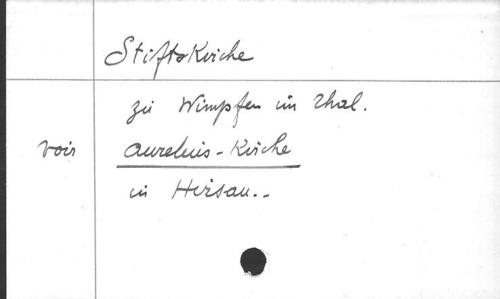 Stiftskirche
zu Wimpfen im Thal.
voir Aurelius-Kirche
in Hirsau..